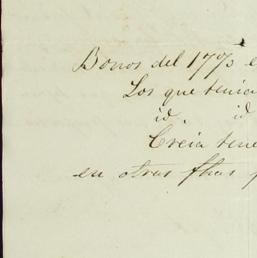 Bonos del 17 % e
Los que tenia
id. id
Creia tene
en otras fhas